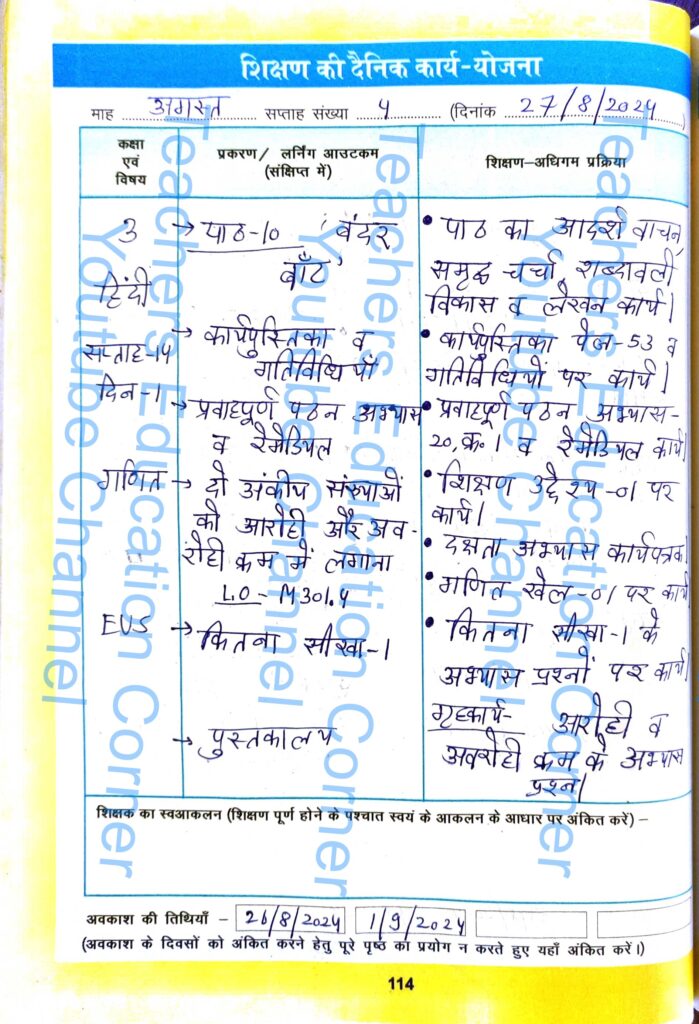 शिक्षण की दैनिक कार्य-योजना
माह अगस्त सप्ताह संख्या 4 (दिनांक 27/8/2024)
कक्षा
एवं
विषय
प्रकरण/ लर्निंग आउटकम
(संक्षिप्त में)
शिक्षण-अधिगम प्रक्रिया
3
हिंदी
सप्ताह-14
दिन-1
→ पाठ-10 'बंदर
बाँट'
→ कार्यपुस्तिका व
गतिविधियाँ
→ प्रवाहपूर्ण पठन अभ्यास
व रेमेडियल
• पाठ का आदर्श वाचन,
समृद्ध चर्चा, शब्दावली
विकास व लेखन कार्य।
• कार्यपुस्तिका पेज-53 व
गतिविधियों पर कार्य।
• प्रवाहपूर्ण पठन अभ्यास-
20, क्र.1 व रेमेडियल कार्य।
गणित
→ दो अंकीय संख्याओं
को आरोही और अव-
रोही क्रम में लगाना
L.O - M301.4
• शिक्षण उद्देश्य-01 पर
कार्य।
• दक्षता अभ्यास कार्यपत्रक।
• गणित खेल-01 पर कार्य
EVS
→ कितना सीखा-1
• कितना सीखा-1 के
अभ्यास प्रश्नों पर कार्य।
→ पुस्तकालय
गृहकार्य- आरोही व
अवरोही क्रम के अभ्यास
प्रश्न।
शिक्षक का स्वआकलन (शिक्षण पूर्ण होने के पश्चात स्वयं के आकलन के आधार पर अंकित करें) –
अवकाश की तिथियाँ – 26/8/2024 1/9/2024
(अवकाश के दिवसों को अंकित करने हेतु पूरे पृष्ठ का प्रयोग न करते हुए यहाँ अंकित करें।)
114
Teachers Education Corner
Youtube Channel
Teachers Education Corner
Youtube Channel
Teachers Education Corner
Youtube Channel